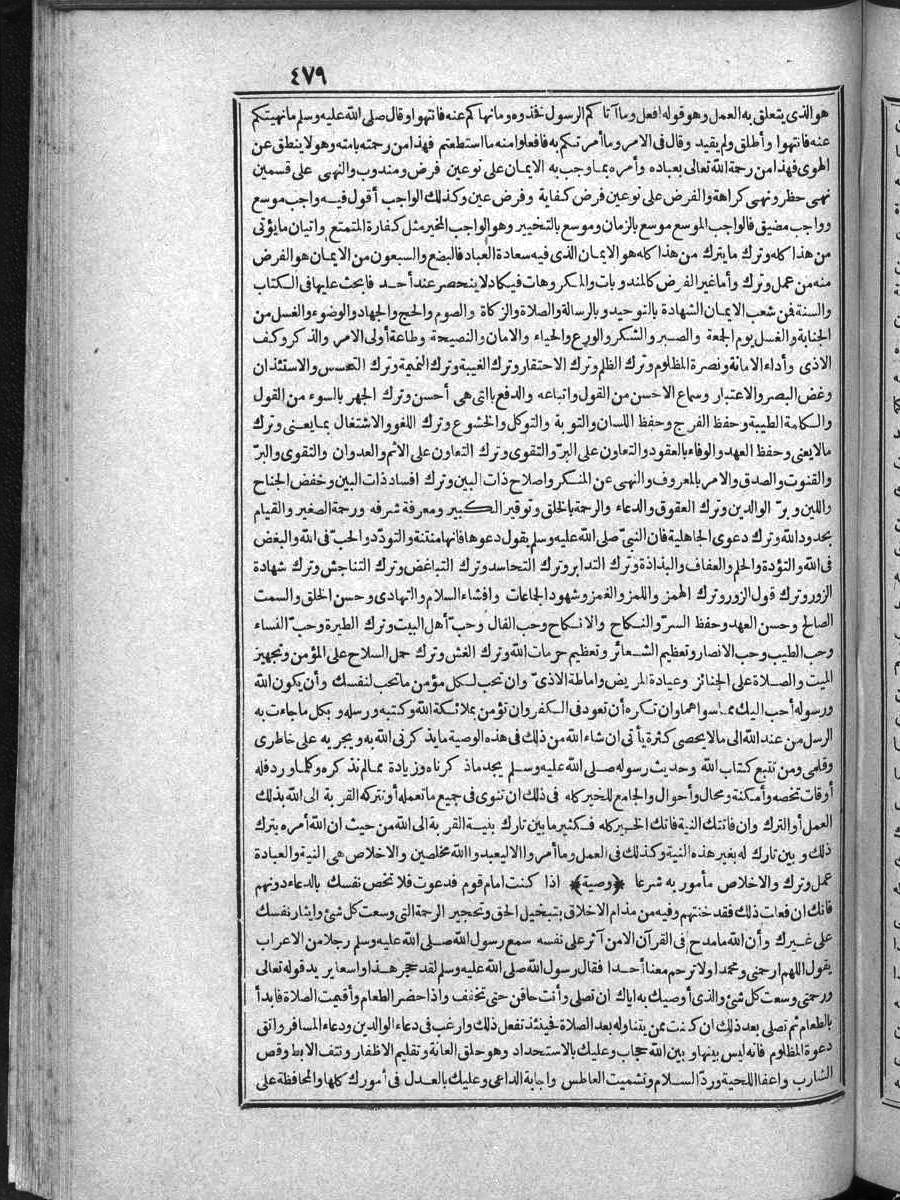 ٤٧٩
هو الذى يتعلق به العمل وهو قوله افعل وما آتا كم الرسول فخذوه وما نها كم عنه فانتهوا وقال صلى الله عليه وسلم ما نهيتكم
عنه فانتهوا وأطلق ولم يقيد وقال فى الامر وما أمرتكم به فافعلوا منه ما استطعتم فهذا من رحمته بامته وهو لا ينطق عن
الهوى فهذا من رحمة الله تعالى بعباده وأمره بما وجب به الايمان على نوعين فرض ومندوب والنهى على قسمين
نهى حظر ونهى كراهة والفرض على نوعين فرض كفاية وفرض عين وكذلك الواجب أقول فيه واجب موسع
وواجب مضيق فالواجب الموسع موسع بالزمان وموسع بالتخيير وهو الواجب المخير مثل كفارة المتمتع واتيان ما يؤتى
من هذا كله وترك ما يترك من هذا كله هو الايمان الذى فيه سعادة العباد فالبضع والسبعون من الايمان هو الفرض
منه من عمل وترك وأما غير الفرض كالمندوبات والمكروهات فيكاد لا ينحصر عند أحد فابحث عليها فى الكتاب
والسنة فمن شعب الايمان الشهادة بالتوحيد وبالرسالة والصلاة والزكاة والصوم والحج والجهاد والوضوء والغسل من
الجنابة والغسل يوم الجمعة والصبر والشكر والورع والحياء والامان والنصيحة وطاعة أولى الامر والذكر وكف
الاذى وأداء الامانة ونصرة المظلوم وترك الظلم وترك الاحتقار وترك الغيبة وترك النميمة وترك التجسس والاستئذان
وغض البصر والاعتبار وسماع الاحسن من القول واتباعه والدفع بالتى هى أحسن وترك الجهر بالسوء من القول
والكلمة الطيبة وحفظ الفرج وحفظ اللسان والتوبة والتوكل والخشوع وترك اللغو والاشتغال بما يعنى وترك
مالا يعنى وحفظ العهد والوفاء بالعقود والتعاون على البرّ والتقوى وترك التعاون على الاثم والعدوان والتقوى والبرّ
والقنوت والصدق والامر بالمعروف والنهى عن المنكر واصلاح ذات البين وترك افساد ذات البين وخفض الجناح
واللين وبرّ الوالدين وترك العقوق والدعاء والرحمة بالخلق وتوقير الكبير ومعرفة شرفه ورحمة الصغير والقيام
بحدود الله وترك دعوى الجاهلية فان النبىّ صلى الله عليه وسلم يقول دعوها فانها منتنة والتودّد والحبّ فى الله والبغض
فى الله والتؤدة والحلم والعفاف والبذاذة وترك التدابر وترك التحاسد وترك التباغض وترك التناجش وترك شهادة
الزور وترك قول الزور وترك الهمز واللمز والغمز وشهود الجاعات وافشاء السلام والتهادى وحسن الخلق والسمت
الصالح وحسن العهد وحفظ السرّ والنكاح والانكاح وحب الفال وحبّ أهل البيت وترك الطيرة وحبّ النساء
وحب الطيب وحب الانصار وتعظيم الشعائر وتعظيم حرمات الله وترك الغش وترك حمل السلاح على المؤمن وتجهيز
الميت والصلاة على الجنائز وعيادة المريض واماطة الاذى وان تحب لكل مؤمن ما تحب لنفسك وأن يكون الله
ورسوله أحب اليك مما سواهما وان تكره أن تعود فى الكفر وان تؤمن بملائكة الله وكتبه ورسله وبكل ما جاءت به
الرسل من عند الله الى مالا يحصى كثرة يأتى ان شاء الله من ذلك فى هذه الوصية ما يذكرنى الله به ويجريه على خاطرى
وقلمى ومن تتبع كتاب الله وحديث رسوله صلى الله عليه وسلم يجد ماذكرناه وزيادة ممالم نذكره وكلما ورد فله
أوقات تخصه وأمكنة ومحال وأحوال والجامع للخير كله فى ذلك ان تنوى فى جميع ما تعمله أو تتركه القربة الى الله بذلك
العمل أو الترك وان فاتتك النية فاتك الخير كله فكثير ما بين تارك بنية القربة الى الله من حيث ان الله أمره بترك
ذلك وبين تارك له بغير هذه النية وكذلك فى العمل وما أمروا الا ليعبدوا الله مخلصين والاخلاص هى النية والعبادة
عمل وترك والاخلاص مأمور به شرعا ﴿وصية﴾ اذا كنت امام قوم فدعوت فلا تخص نفسك بالدعاء دونهم
فانك ان فعلت ذلك فقد خنتهم وفيه من مذام الاخلاق بتبخيل الحق وتحجير الرحمة التى وسعت كل شئ وايثار نفسك
على غيرك وأن الله ما مدح فى القرآن الا من آثر على نفسه سمع رسول الله صلى الله عليه وسلم رجلا من الاعراب
يقول اللهم ارحمنى ومحمدا ولا ترحم معنا أحدا فقال رسول الله صلى الله عليه وسلم لقد حجر هذا واسعا يريد قوله تعالى
ورحمتى وسعت كل شئ والذى أوصيك به اياك ان تصلى وأنت حاقن حتى تخفف واذا حضر الطعام وأقيمت الصلاة فابدأ
بالطعام ثم تصلى بعد ذلك ان كنت ممن يتناوله بعد الصلاة فينئذ تفعل ذلك وارغب فى دعاء الوالدين ودعاء المسافر واتق
دعوة المظلوم فانه ليس بينها وبين الله حجاب وعليك بالاستحداد وهو حلق العانة وتقليم الاظفار ونتف الابط وقص
الشارب واعفا اللحية وردّ السلام وتشميت العاطس واجابة الداعى وعليك بالعدل فى أمورك كلها والمحافظة على